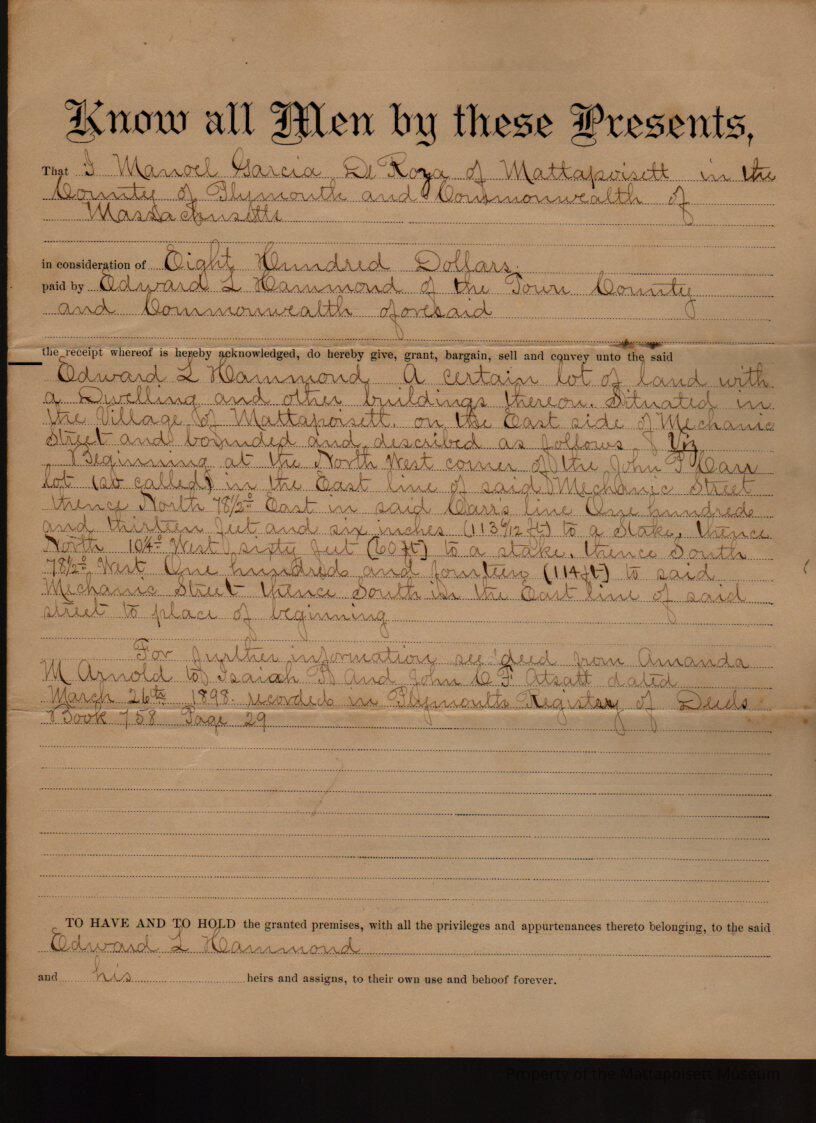 Know all Men by these Presents,
That I Manoel Garcia De Roza of Mattapoisett in the
County of Plymouth and Commonwealth of
Massachusetts
in consideration of Eight Hundred Dollars.
paid by Edward L Hammond of the Town County
and Commonwealth aforesaid
the receipt whereof is hereby acknowledged, do hereby give, grant, bargain, sell and convey unto the said
Edward L Hammond, A certain lot of land with
a Dwelling and other buildings thereon. Situated in
the Village of Mattapoisett. on the East side of Mechanic
Street and bounded and described as follows Viz
Beginning at the North West corner of the John F Carr
lot (so called) in the East line of said Mechanic Street
thence North 78½° East in said Carrs line One hundred
and thirteen feet and six inches (113 6/12 ft) to a Stake, thence
North 10¾° West sixty feet (60 ft) to a stake. thence South
78½° West One hundred and fourteen (114 ft) to said
Mechanic Street thence South in the East line of said
street to place of beginning
For further information see deed from Amanda
M Arnold to Isaiah P And John C F Atsatt dated
March 26th 1898. recorded in Plymouth Registry of Deeds
Book 758 Page 29
TO HAVE AND TO HOLD the granted premises, with all the privileges and appurtenances thereto belonging, to the said
Edward L Hammond
and his heirs and assigns, to their own use and behoof forever.
Property of the Mattapoisett Museum